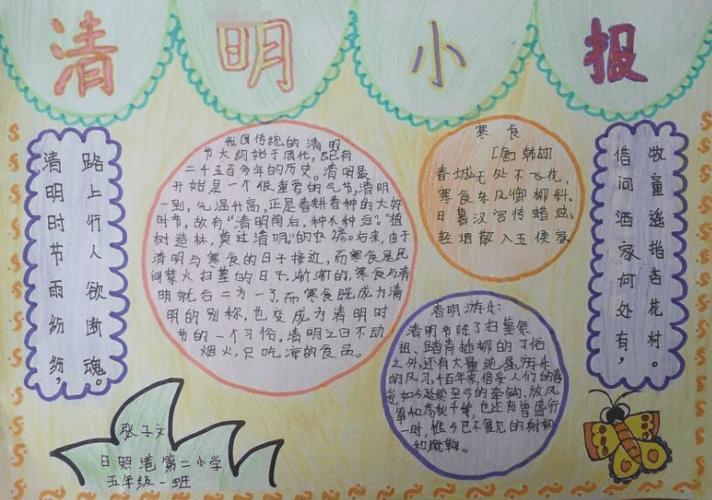 清明小报
清明时节雨纷纷，
路上行人欲断魂。
我国传统的清明
节大约始于周代，已有
二千五百多年的历史。清明最
开始是一个很重要的气节，清明
一到，气温升高，正是春耕春种的大好
时节，故有“清明前后，种瓜种豆”。“植
树造林，莫过清明”的农谚。后来，由于
清明与寒食的日子接近，而寒食是民
间禁火扫墓的日子，渐渐的，寒食与清
明就合二为一了，而寒食既成为清
明的别称，也变成为清明时
节的一个习俗，清明之日不动
烟火，只吃凉的食品。
寒食
[唐]韩翃
春城无处不飞花，
寒食东风御柳斜。
日暮汉宫传蜡烛，
轻烟散入五侯家
借问酒家何处有，
牧童遥指杏花村。
清明游乐
清明节除了扫墓祭
祖、踏青插柳的习俗
之外，还有大量
的风习，千百年来，倍受人们的喜
的牵钩、放风
筝和荡秋千等，也还有曾盛行
一时，惟今已不复见的射柳
和蹴鞠。
张子文
日照港第二小学
五年级一班